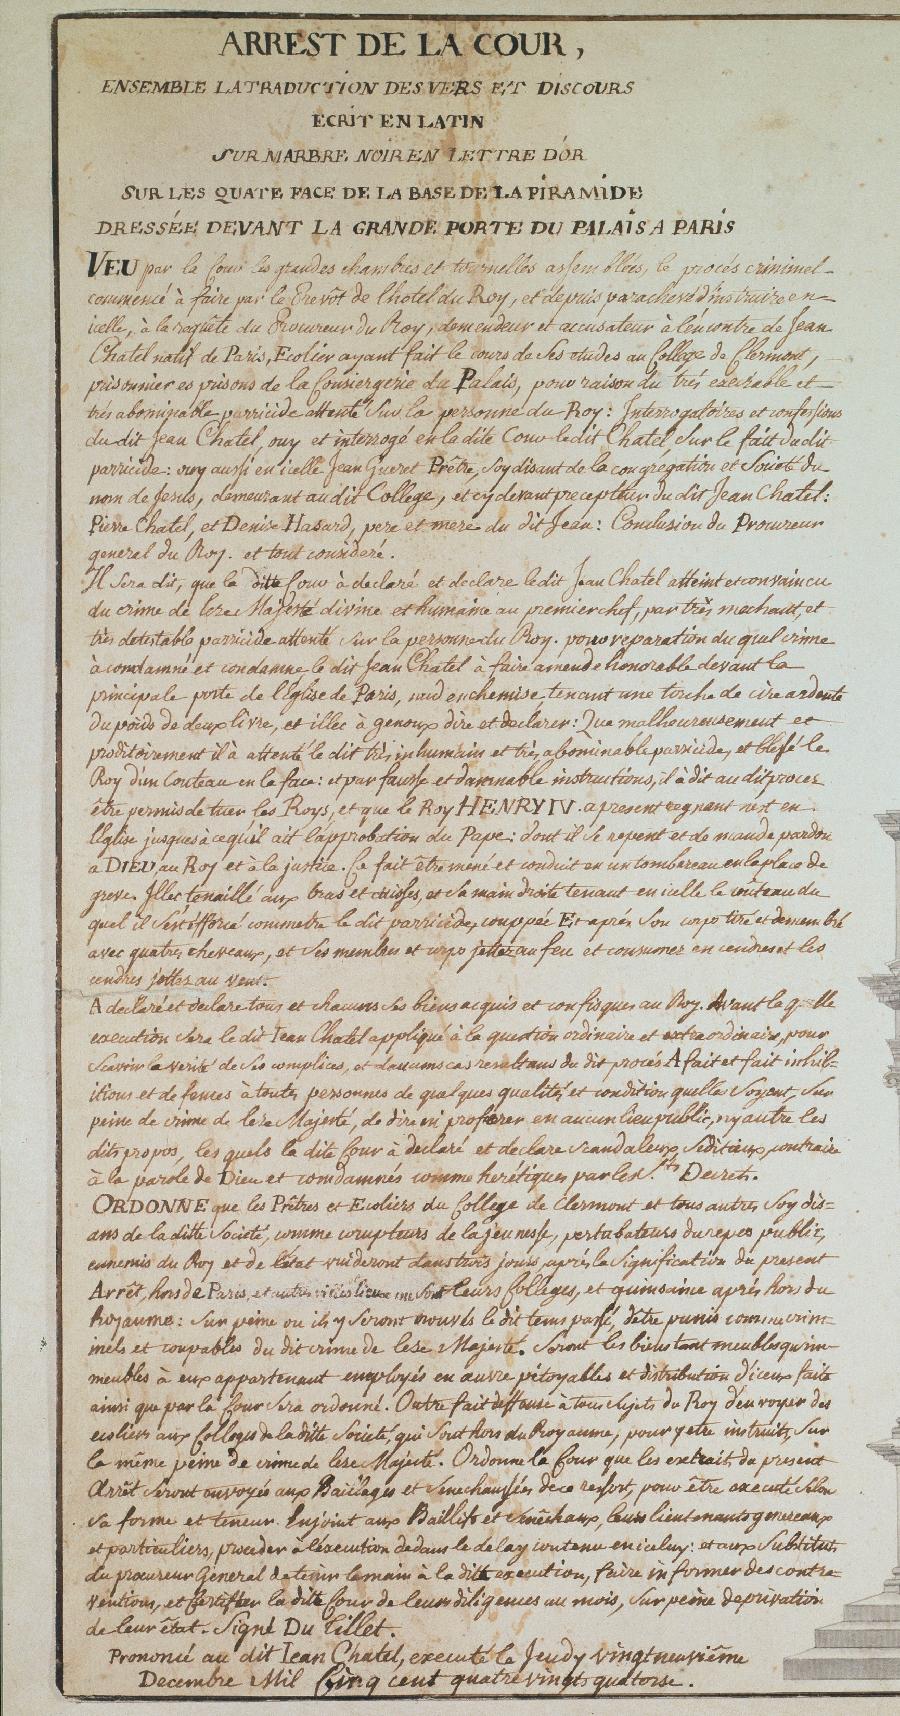 ARREST DE LA COUR,
ENSEMBLE LA TRADUCTION DES VERS ET DISCOURS
ECRIT EN LATIN
SUR MARBRE NOIR EN LETTRE D'OR
SUR LES QUATE FACE DE LA BASE DE LA PIRAMIDE
DRESSÉE DEVANT LA GRANDE PORTE DU PALAIS A PARIS
VEU par la Cour les grandes chambres et tournelles assemblées, le procés criminel
commencé à faire par le Prevôt de l'hotel du Roy, et depuis parachevé d'instruire en
icelle, à la requête du Procureur du Roy, demendeur et accusateur à l'encontre de Jean
Chatel natif de Paris, Ecolier ayant fait le cours de ses etudes au College de Clermont,
prisonnier es prisons de la Consiergerie du Palais, pour raison du trés execrable et
trés abominable parricide attenté sur la personne du Roy: Interrogatoires et confessions
du dit Jean Chatel, ouy et interrogé en la dite Cour le dit Chatel, sur le fait du dit
parricide: ouy aussi en icelle Jean Gueret Prêtre, soy disant de la congregation et Societé du
nom de Jesus, demeurant au dit College, et cy devant precepteur du dit Jean Chatel:
Pierre Chatel, et Denise Hasard, pere et mere du dit Jean: Conclusion du Procureur
general du Roy. et tout consideré.
Il sera dit, que la ditte Cour à declaré et declare le dit Jean Chatel atteint et convaincu
du crime de leze Majesté divine et humaine au premier chef, par très mechant, et
très detestable parricide attenté sur la personne du Roy. pour reparation du quel crime
à condamné et condamne le dit Jean Chatel à faire amende honorable devant la
principale porte de l'Eglise de Paris, nud en chemise tenant une torche de cire ardente
du poids de deux livre, et illec à genoux dire et declarer: Que malheureusement et
proditoirement il à attenté le dit très inhumain et très abominable parricide, et blessé le
Roy d'un Couteau en la face: et par fausse et damnable instructions, il à dit au dit procez
être permis de tuer les Roys, et que le Roy HENRY IV. a present regnant n'est en
l'Eglise jusques à ce qu'il ait l'approbation du Pape: dont il se repent et demande pardon
à DIEU, au Roy et à la justice. Ce fait être mené et conduit en un tombereau en la place de
greve. Illec tenaillé aux bras et cuisses, et sa main droite tenant en icelle le couteau du
quel il s'est efforcé commetre le dit parricide, couppée Et aprés son corps tiré et demembré
avec quatre chevaux, et ses membres et corps jettez au feu et consumez en cendres et les
cendres jettez au vent.
A declaré et declare tous et chacuns ses biens acquis et confisques au Roy. Avant la quelle
execution sera le dit Jean Chatel appliqué à la question ordinaire et extraordinaire, pour
scavoir la verité de ses complices, et d'aucuns cas resultans du dit procés A fait et fait inhib-
itions et defences à toutes personnes de quelques qualité, et condition quelles soyent, sur
peine de crime de leze Majesté, de dire ni proferer en aucun lieu public, ny autre les
dits propos, les quels la dite Cour à declaré et declare scandaleux, seditieux, contraire
à la parole de Dieu et comdamnés comme herétiques par les Sts Decrets.
ORDONNE que les Prêtres et Ecoliers du College de Clermont et tous autres soy dis-
ans de la ditte Societé, comme corupteurs de la jeunesse, pertubateurs du repos public,
ennemis du Roy et de l'état vuideront dans trois jours, après la signification du present
Arrêt, hors de Paris, et autre villes lieux ou sont leurs Colleges, et quinsaine aprés hors du
Royaume: sur peine ou ils y seront trouvés le dit tems passé, d'etre punis comme crim-
inels et coupables du dit crime de leze Majesté. Seront les biens tant meubles qu'im-
meubles à eux appartenant employés en œuvre pitoyables et distribution d'iceux faite
ainsi que par la Cour sera ordonné. Outre fait deffense à tous sujets du Roy d'envoyer des
ecoliers aux Colleges de la ditte Societé, qui sont hors du Royaume, pour y etre instruits, sur
la même peine de crime de leze Majesté. Ordonne la Cour que les extraits du present
Arrêt seront envoyés aux Baillages et Senechaussées de ce resort, pour être executé selon
sa forme et teneur. Enjoint aux Baillifs et Senêchaux, leurs lieutenants generaux
et particuliers, proceder à l'execution dedans le delay contenu en iceluy: et aux Substituts
du procureur General de tenir la main à la ditte execution, faire informer des contre-
ventions, et certifier la ditte Cour de leurs diligences au mois, sur peine de privation
de leur êtat. Signé Du Tillet.
Prononcé au dit Jean Chatel, executé le Jeudy vingtneuviême
Decembre Mil Cinq cent quatre vingts quatorse.